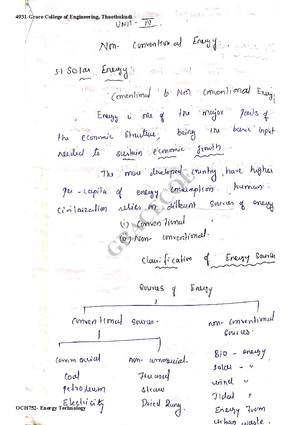 4931-Grace College of Engineering, Thoothukudi
UNIT - III
Non-Conventional Energy:
3.1 Solar Energy:
Conventional & Non Conventional Energy:
Energy is one of the major parts of
the economic structure, being the basic input
needed to sustain economic growth.
The more developed country, have higher
per-capita of energy consumption. human
civilaization relies on different sources of energy
(i) Conventional
(ii) Non-conventional.
GE-GRACECOE
Classification of Energy Sources
Sources of Energy
Conventional sources.
non-conventional
sources.
Commercial
non-commercial.
Bio - energy
Coal
Firewood
solar - "
Petroleum
straw
wind - "
Electricity
Dried dung.
Tidal "
Energy from
urban waste.
OCH752- Energy Technology